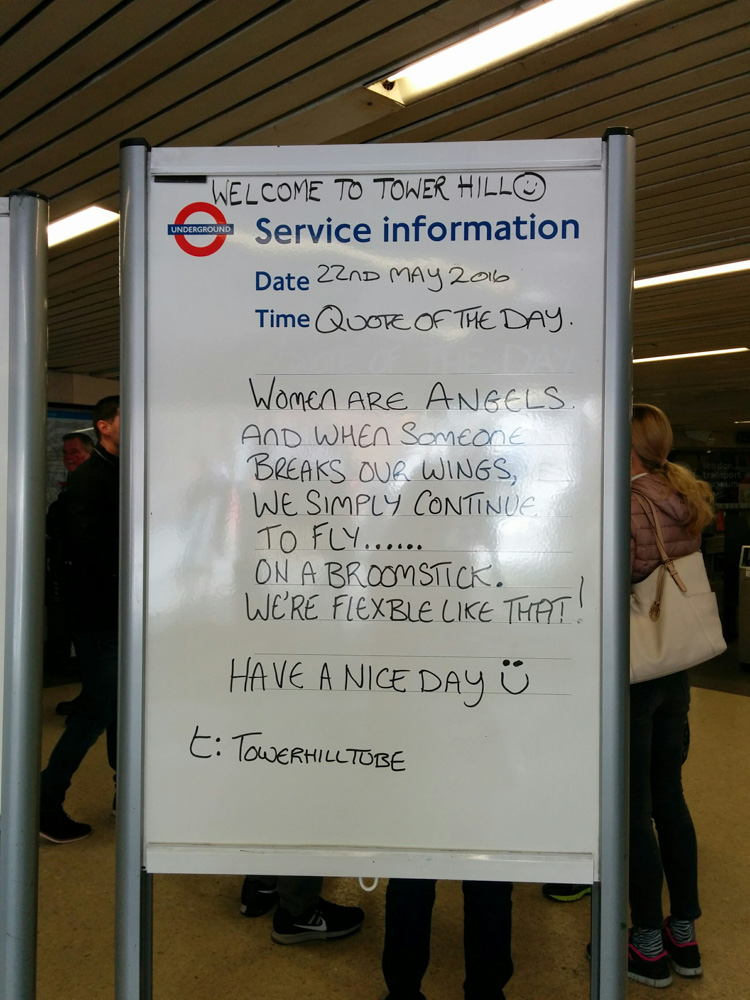 WELCOME TO TOWER HILL
UNDERGROUND
Service information
Date 22ND MAY 2016
Time QUOTE OF THE DAY.
WOMEN ARE ANGELS.
AND WHEN SOMEONE
BREAKS OUR WINGS,
WE SIMPLY CONTINUE
TO FLY......
ON A BROOMSTICK.
WE'RE FLEXBLE LIKE THAT!
HAVE A NICE DAY
t: TOWERHILLTUBE